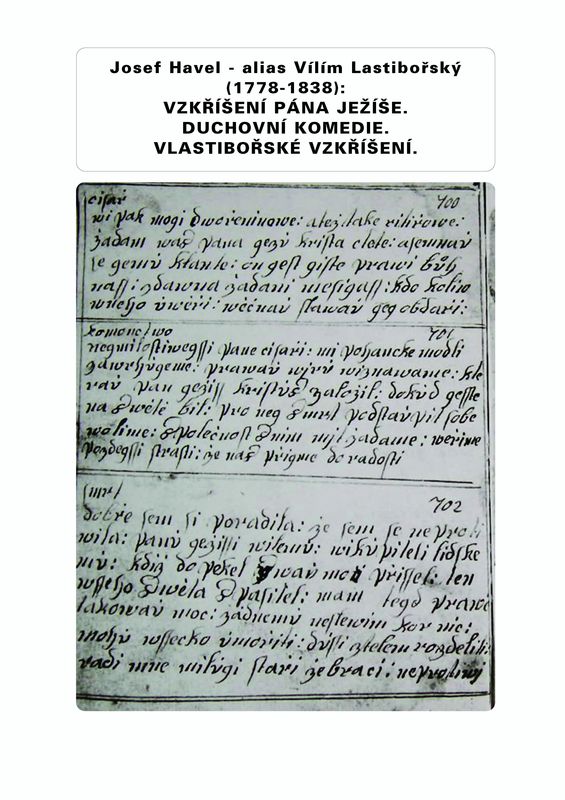 Josef Havel - alias Vílím Lastibořský
(1778-1838):
VZKŘÍŠENÍ PÁNA JEŽÍŠE.
DUCHOVNÍ KOMEDIE.
VLASTIBOŘSKÉ VZKŘÍŠENÍ.
cisař 700
wi pak mogi dworeninowe: atoz take ritirowe:
žadam was pana gezu krista ctete: a
se gemu klante: on gest giste prawi bůh
nass: zdawna žadani mesigass: kdo koliw
wneho uwěři: wěčnau slawau geg obdaři:
komonctwo 701
neymilostiwegssi pane cisaři: mi pohanske modli
zawrhugeme: prawau wiru wiznawame: kte
rau pan gežiss kristus založil: dokud geste
na swětě bil: pro neg smrt podstaupit sobe
wolime: spolecnost snim mit žadame: werime
pozdegssi strasti: že nas prigme do radosti
smrt 702
dobře sem si poradila: že sem se neproti
wila: panu gežissi witemu: wikupiteli lidske
mu: když do pekel přissel: ten
wsseho swěta spasitel: mam tegd prawe
takowau moc: žadnemu nestewim kor nic:
mohu wssecko umořiti: dussi stelem rozdeliti:
radi mne milugi staři žebraci: